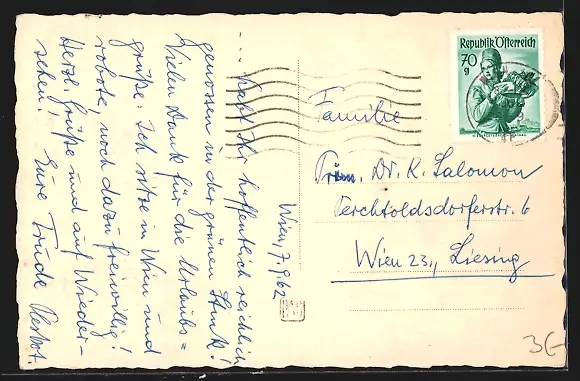 Wien, 7.9.62
... habt Ihr hoffentlich reichlich
genossen in der grünen
Vielen Dank für die Urlaubs=
grüße. Ich sitze in Wien und
robote, noch dazu freiwillig!
Herzl. Grüße und auf Wieder-
sehen.
Eure Trude
Republik Österreich
70
g
Familie
Dr. K. Salomon
Perchtoldsdorferstr. 6
Wien 23., Liesing
3€-